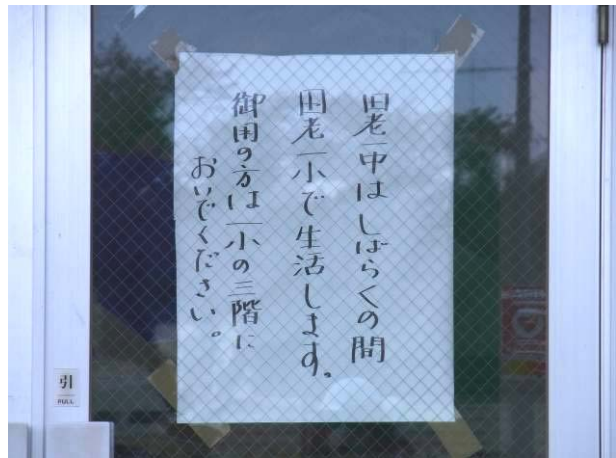 田老一中はしばらくの間
田老一小で生活します。
御用の方は一小の三階に
おいでください。
引
PULL